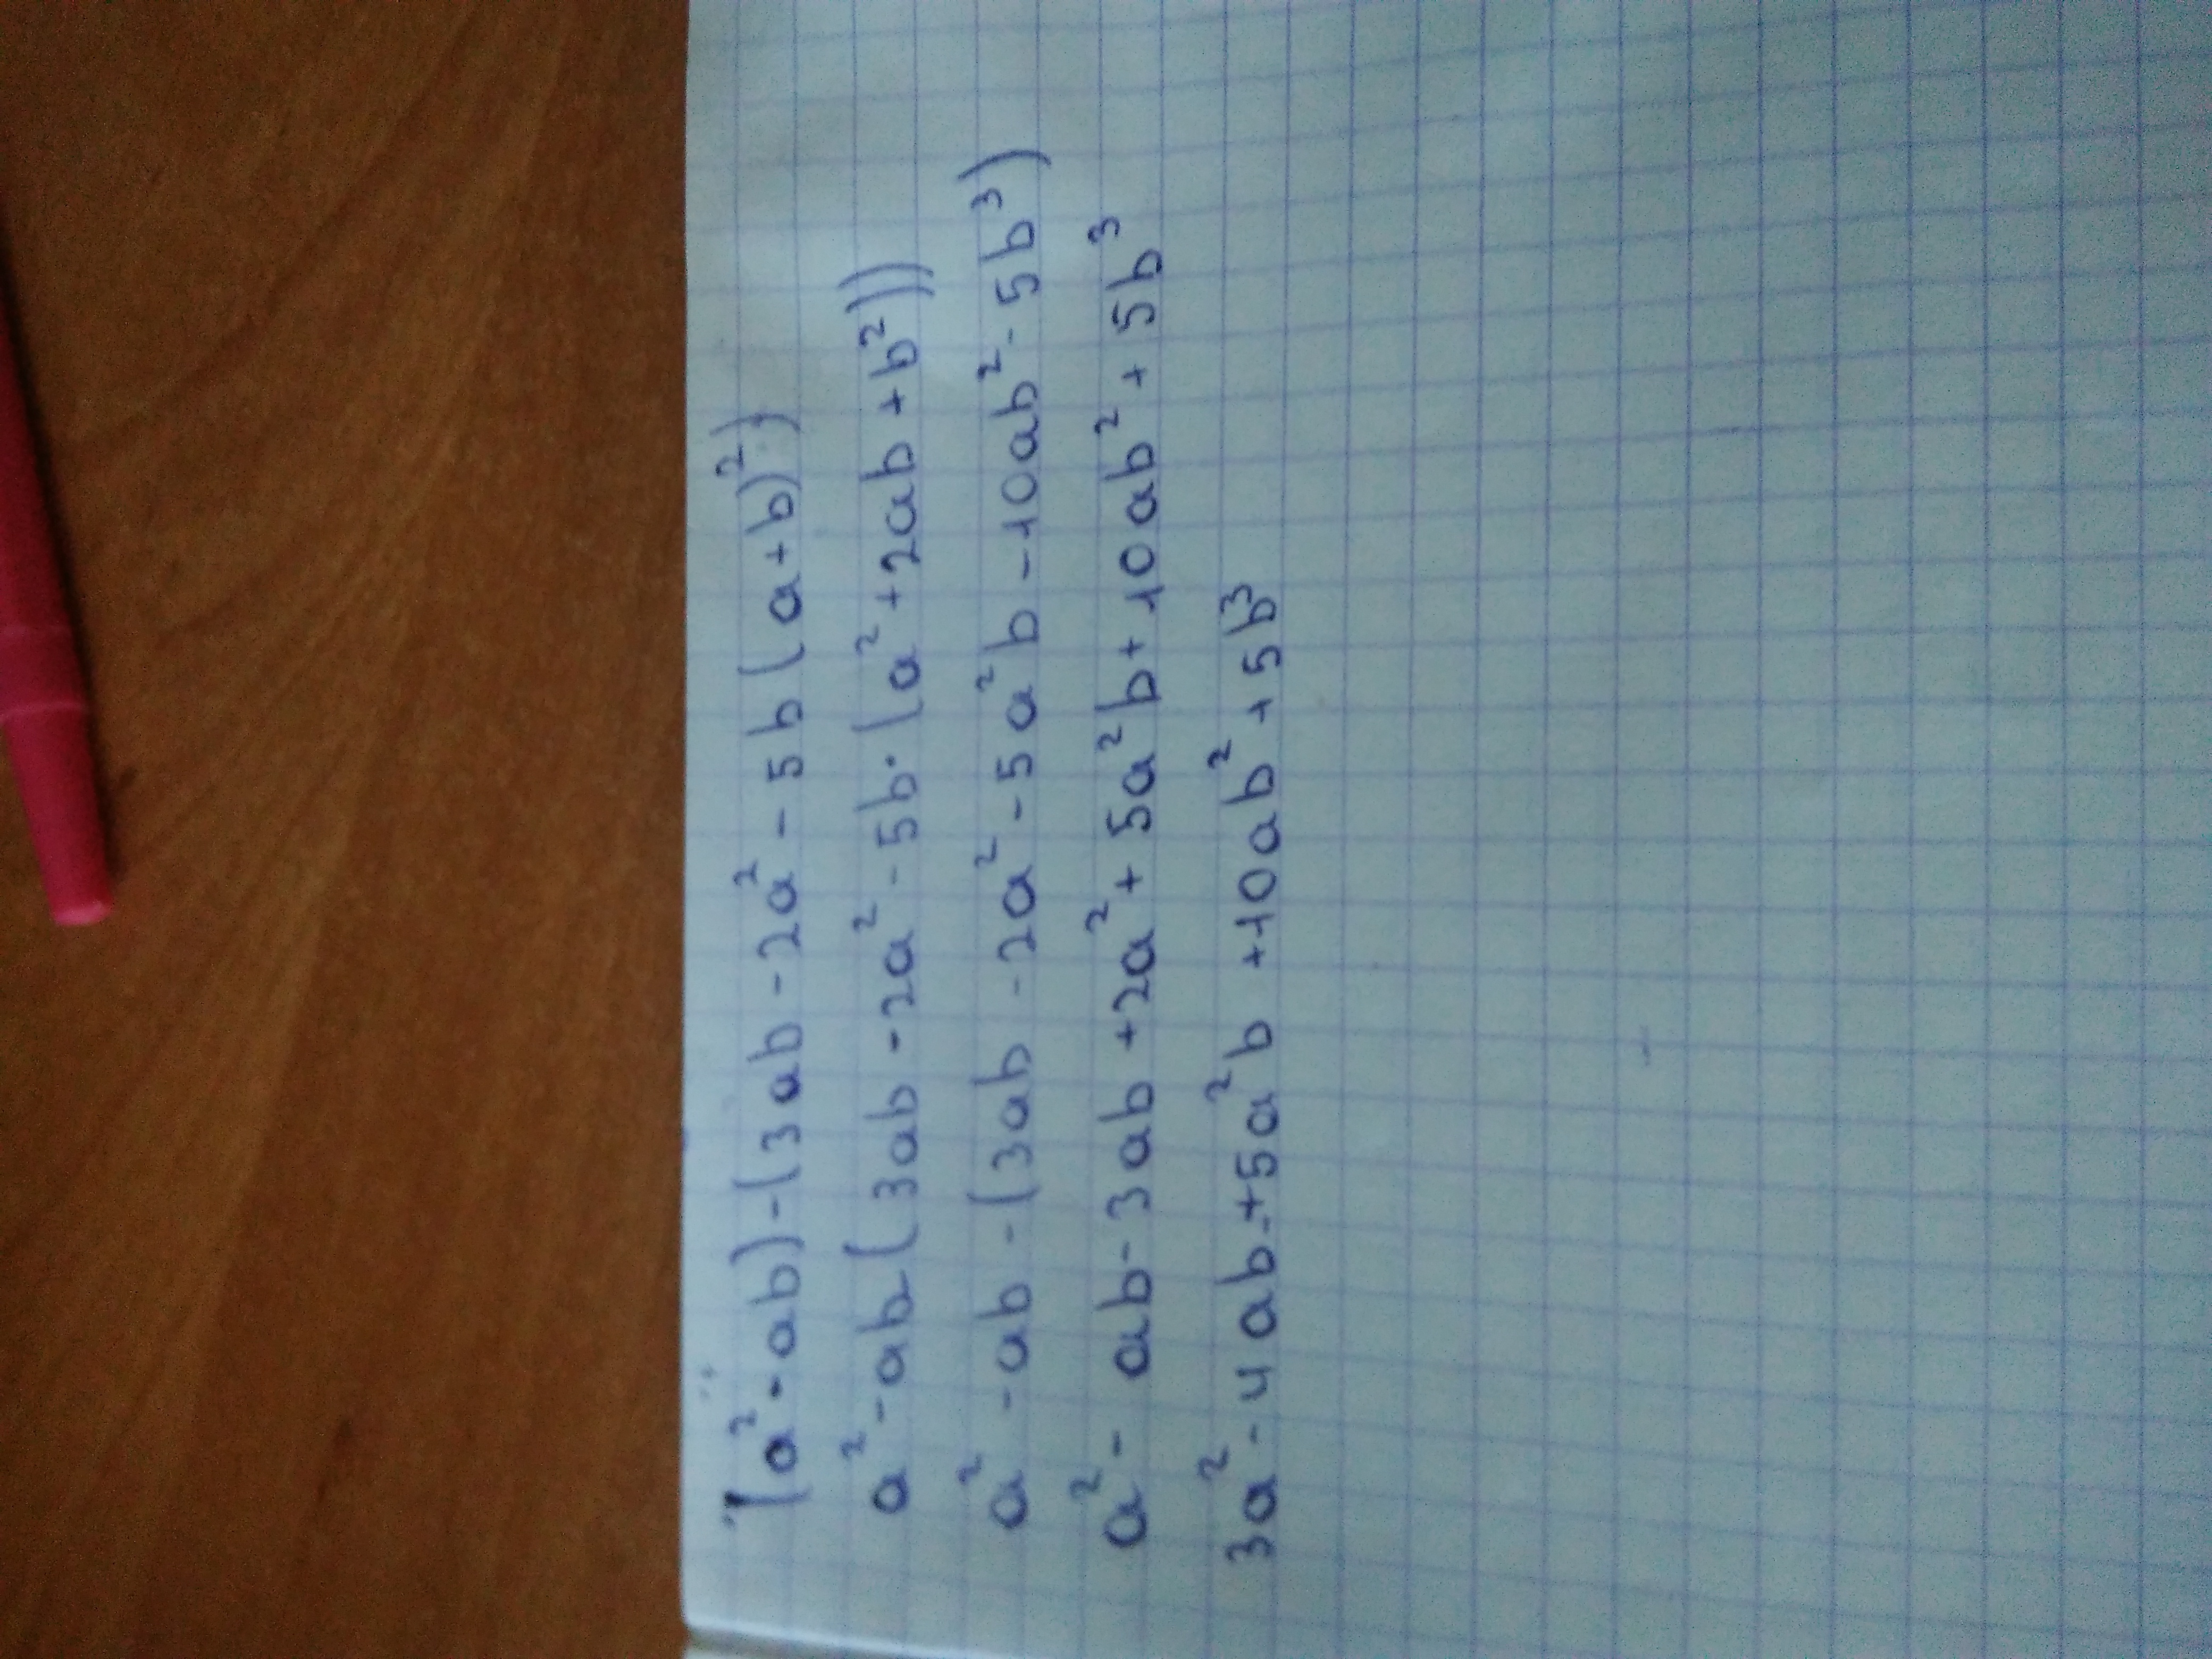 (a² - ab) - (3ab - 2a² - 5b(a+b)²)
a² - ab(3ab - 2a² - 5b·(a² + 2ab + b²))
a² - ab - (3ab - 2a² - 5a²b - 10ab² - 5b³)
a² - ab - 3ab + 2a² + 5a²b + 10ab² + 5b³
3a² - 4ab + 5a²b + 10ab² + 5b³